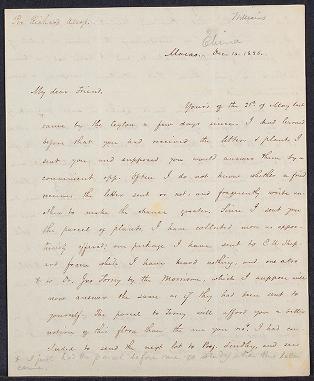 Per Richard Alsop.
Williams
China
Macao, Dec. 10. 1836.
My dear Friend,
Yours of the 21st of May last
came by the Ceylon a few days since. I had learned
before that you had received the letter & plants I
sent you, and supposed you would answer them by a
convenient opp. Often I do not know whether a friend
receives the letter sent or not, and frequently write
another to make the chance greater. Since I sent you
the parcel of plants, I have collected more as oppor-
tunity offered; one package I have sent to
from whom I have heard nothing, and one also
to Dr. Jno Torrey by the Morrison, which I suppose will
now answer the same as if they had been sent to
yourself. The parcel to Torrey will afford you a better
notion of this flora than the one you rec'd. I had con-
cluded to send the next lot to Prof. Lindley, and
& I just had the parcel before me to study when this letter
came.